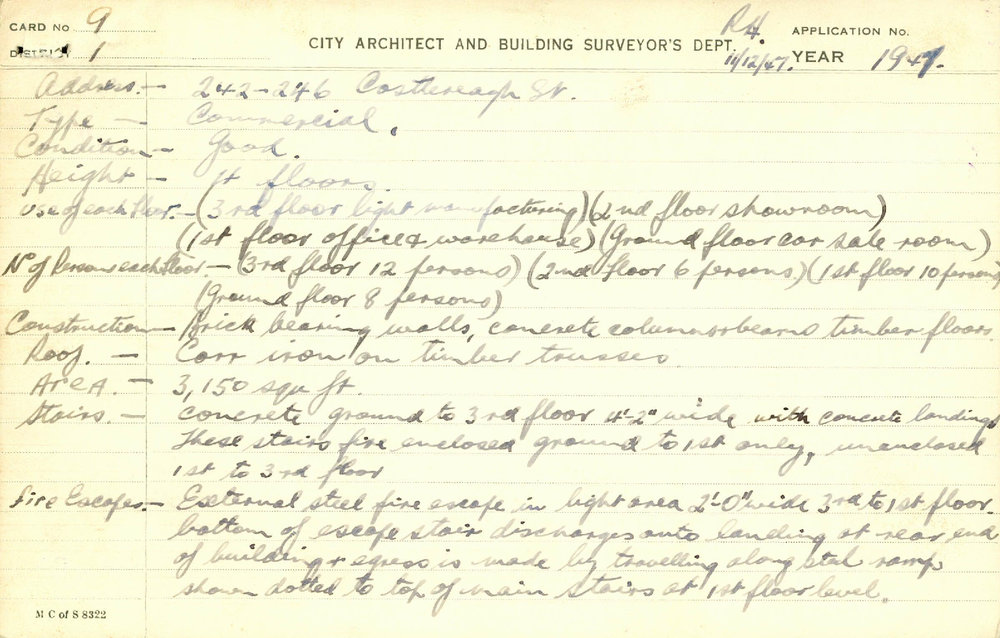 CARD No 9
DISTRICT 1
CITY ARCHITECT AND BUILDING SURVEYOR'S DEPT.
R.H.
11/12/47.
APPLICATION No.
YEAR 1947.
Address.— 242-246 Castlereagh St.
Type — Commercial.
Condition— Good.
Height — 4 floors.
Use of each floor.— (3rd floor light manufacturing) (2nd floor showroom)
(1st floor office & warehouse) (Ground floor car sale room)
No of Persons each floor — (3rd floor 12 persons) (2nd floor 6 persons) (1st floor 10 persons)
(Ground floor 8 persons)
Construction — Brick bearing walls, concrete columns & beams timber floors.
Roof. — Corr iron on timber trusses
Area. — 3,150 squ ft.
Stairs. — Concrete ground to 3rd floor 4'-2" wide with concrete landings
These stairs fire enclosed ground to 1st only, unenclosed
1st to 3rd floor
Fire Escapes.— External steel fire escape in light area 2'-0" wide 3rd to 1st floor.
bottom of escape stair discharges onto landing at rear end
of building & egress is made by travelling along steel ramp
shown dotted to top of main stairs at 1st floor level.
M C of S 8322